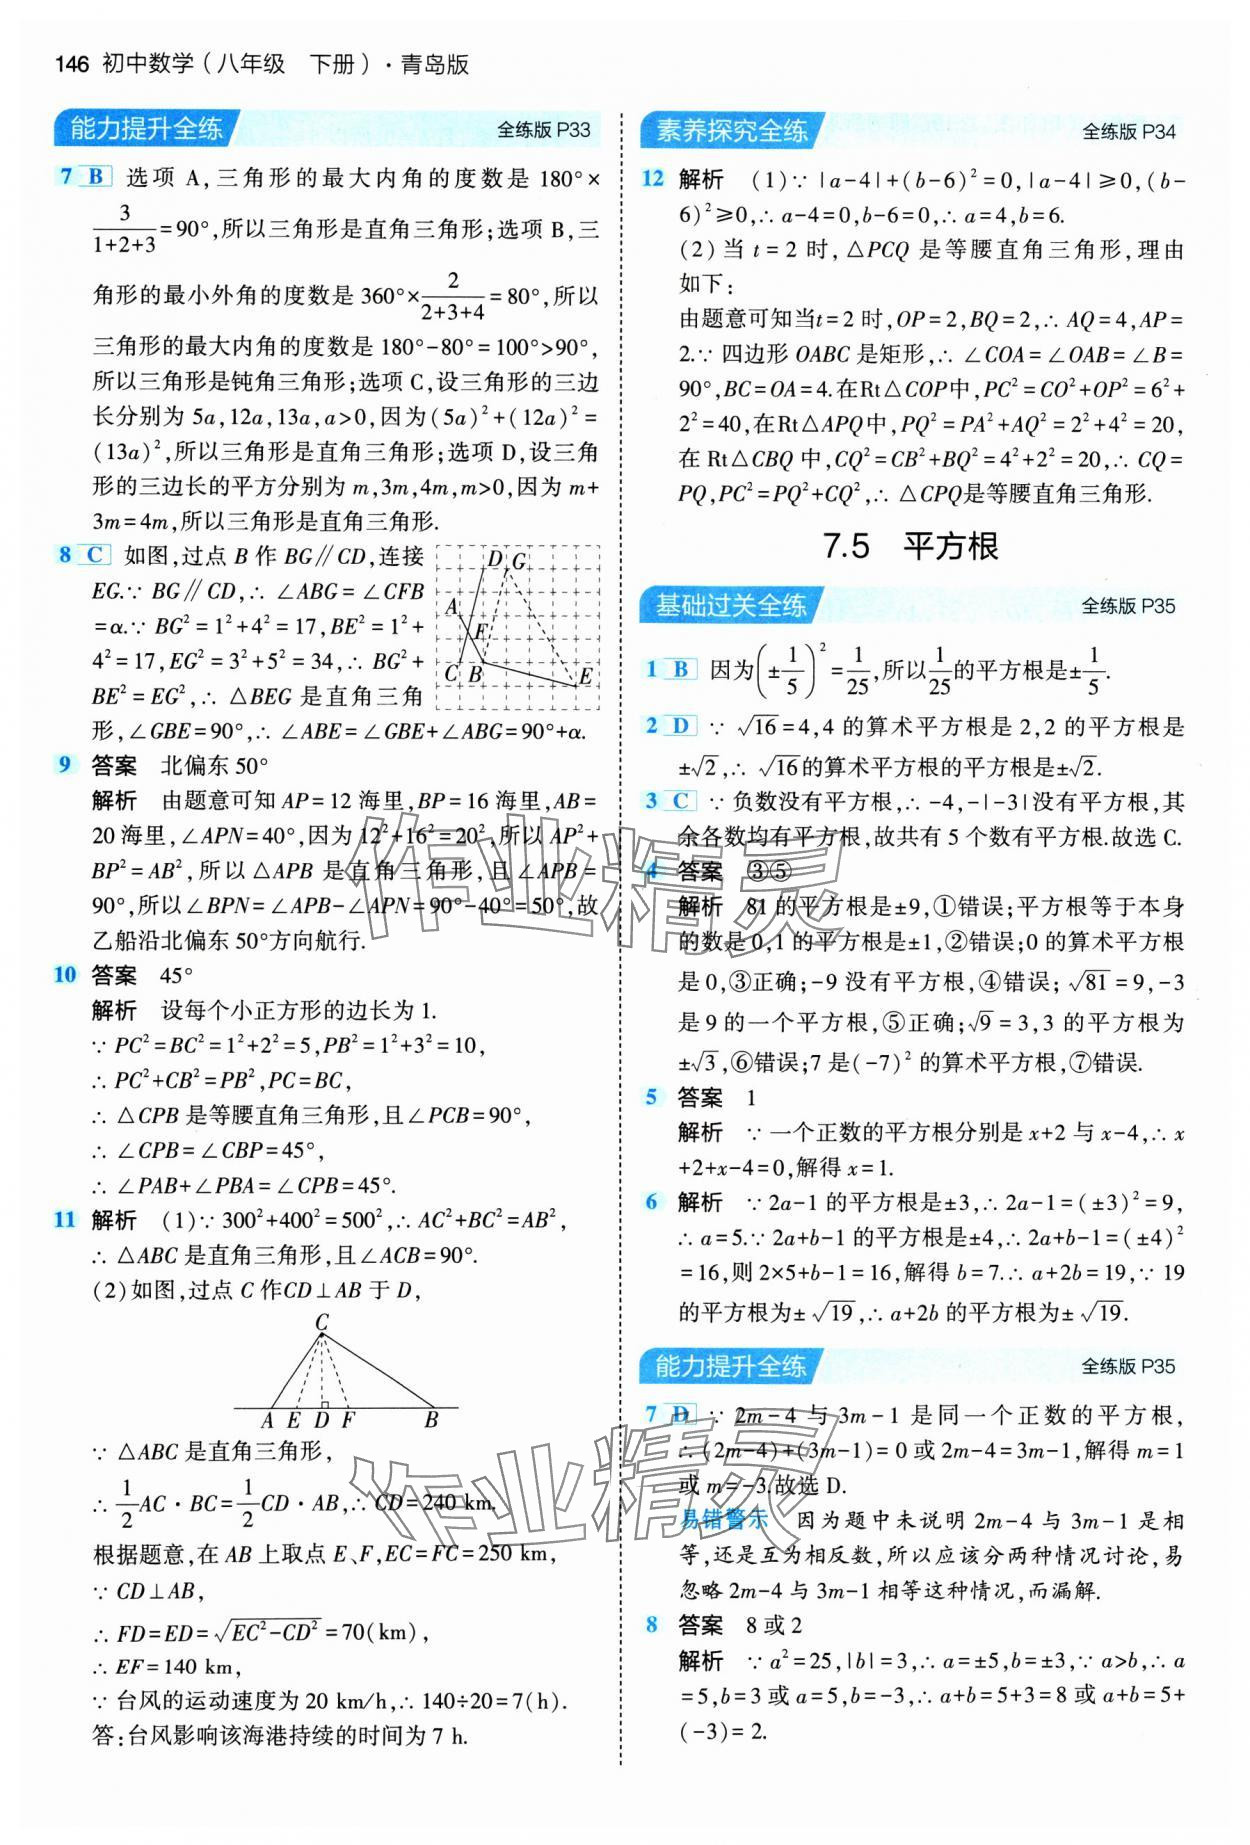 146 初中数学（八年级　下册）·青岛版
能力提升全练　全练版 P33
7 B 选项 A,三角形的最大内角的度数是 180°×
3/(1+2+3)=90°,所以三角形是直角三角形;选项 B,三
角形的最小外角的度数是 360°×2/(2+3+4)=80°,所以
三角形的最大内角的度数是 180°-80°=100°>90°,
所以三角形是钝角三角形;选项 C,设三角形的三边
长分别为 5a,12a,13a,a>0,因为(5a)²+(12a)²=
(13a)²,所以三角形是直角三角形;选项 D,设三角
形的三边长的平方分别为 m,3m,4m,m>0,因为 m+
3m=4m,所以三角形是直角三角形.
8 C 如图,过点 B 作 BG∥CD,连接
EG.∵ BG∥CD,∴ ∠ABG=∠CFB
=α.∵ BG²=1²+4²=17,BE²=1²+
4²=17,EG²=3²+5²=34,∴ BG²+
BE²=EG²,∴ △BEG 是直角三角
形,∠GBE=90°,∴ ∠ABE=∠GBE+∠ABG=90°+α.
D G
A
F
C B E
9 答案　北偏东 50°
解析　由题意可知 AP=12 海里,BP=16 海里,AB=
20 海里,∠APN=40°,因为 12²+16²=20²,所以 AP²+
BP²=AB²,所以 △APB 是直角三角形,且 ∠APB=
90°,所以∠BPN=∠APB-∠APN=90°-40°=50°,故
乙船沿北偏东 50°方向航行.
10 答案　45°
解析　设每个小正方形的边长为 1.
∵ PC²=BC²=1²+2²=5,PB²=1²+3²=10,
∴ PC²+CB²=PB²,PC=BC,
∴ △CPB 是等腰直角三角形,且∠PCB=90°,
∴ ∠CPB=∠CBP=45°,
∴ ∠PAB+∠PBA=∠CPB=45°.
11 解析　(1)∵ 300²+400²=500²,∴ AC²+BC²=AB²,
∴ △ABC 是直角三角形,且∠ACB=90°.
(2)如图,过点 C 作CD⊥AB 于 D,
C
A E D F B
∵ △ABC 是直角三角形,
∴ 1/2 AC·BC=1/2 CD·AB,∴ CD=240 km.
根据题意,在 AB 上取点 E、F,EC=FC=250 km,
∵ CD⊥AB,
∴ FD=ED=√(EC²-CD²)=70(km),
∴ EF=140 km,
∵ 台风的运动速度为 20 km/h,∴ 140÷20=7(h).
答:台风影响该海港持续的时间为 7 h.
素养探究全练　全练版 P34
12 解析　(1)∵ |a-4|+(b-6)²=0,|a-4|≥0,(b-
6)²≥0,∴ a-4=0,b-6=0,∴ a=4,b=6.
(2)当 t=2 时,△PCQ 是等腰直角三角形,理由
如下:
由题意可知当t=2 时,OP=2,BQ=2,∴ AQ=4,AP=
2.∵ 四边形 OABC 是矩形,∴ ∠COA=∠OAB=∠B=
90°,BC=OA=4.在Rt△COP中,PC²=CO²+OP²=6²+
2²=40,在Rt△APQ中,PQ²=PA²+AQ²=2²+4²=20,
在 Rt△CBQ 中,CQ²=CB²+BQ²=4²+2²=20,∴ CQ=
PQ,PC²=PQ²+CQ²,∴ △CPQ是等腰直角三角形.
7.5　平方根
基础过关全练　全练版 P35
1 B 因为(±1/5)²=1/25,所以1/25的平方根是±1/5.
2 D ∵ √16=4,4 的算术平方根是 2,2 的平方根是
±√2,∴ √16的算术平方根的平方根是±√2.
3 C ∵ 负数没有平方根,∴ -4,-|-3|没有平方根,其
余各数均有平方根,故共有 5 个数有平方根.故选 C.
4 答案　③⑤
解析　81 的平方根是±9,①错误;平方根等于本身
的数是 0,1 的平方根是±1,②错误;0 的算术平方根
是 0,③正确;-9 没有平方根,④错误;√81=9,-3
是 9 的一个平方根,⑤正确;√9=3,3 的平方根为
±√3,⑥错误;7 是(-7)² 的算术平方根,⑦错误.
5 答案　1
解析　∵ 一个正数的平方根分别是 x+2 与 x-4,∴ x
+2+x-4=0,解得 x=1.
6 解析　∵ 2a-1 的平方根是±3,∴ 2a-1=(±3)²=9,
∴ a=5.∵ 2a+b-1 的平方根是±4,∴ 2a+b-1=(±4)²
=16,则 2×5+b-1=16,解得 b=7.∴ a+2b=19,∵ 19
的平方根为±√19,∴ a+2b 的平方根为±√19.
能力提升全练　全练版 P35
7 D ∵ 2m-4 与 3m-1 是同一个正数的平方根,
∴(2m-4)+(3m-1)=0 或 2m-4=3m-1,解得 m=1
或 m=-3.故选 D.
易错警示　因为题中未说明 2m-4 与 3m-1 是相
等,还是互为相反数,所以应该分两种情况讨论,易
忽略 2m-4 与 3m-1 相等这种情况,而漏解.
8 答案　8 或 2
解析　∵ a²=25,|b|=3,∴ a=±5,b=±3,∵ a>b,∴ a
=5,b=3 或 a=5,b=-3,∴ a+b=5+3=8 或 a+b=5+
(-3)=2.
作业精灵
作业精灵